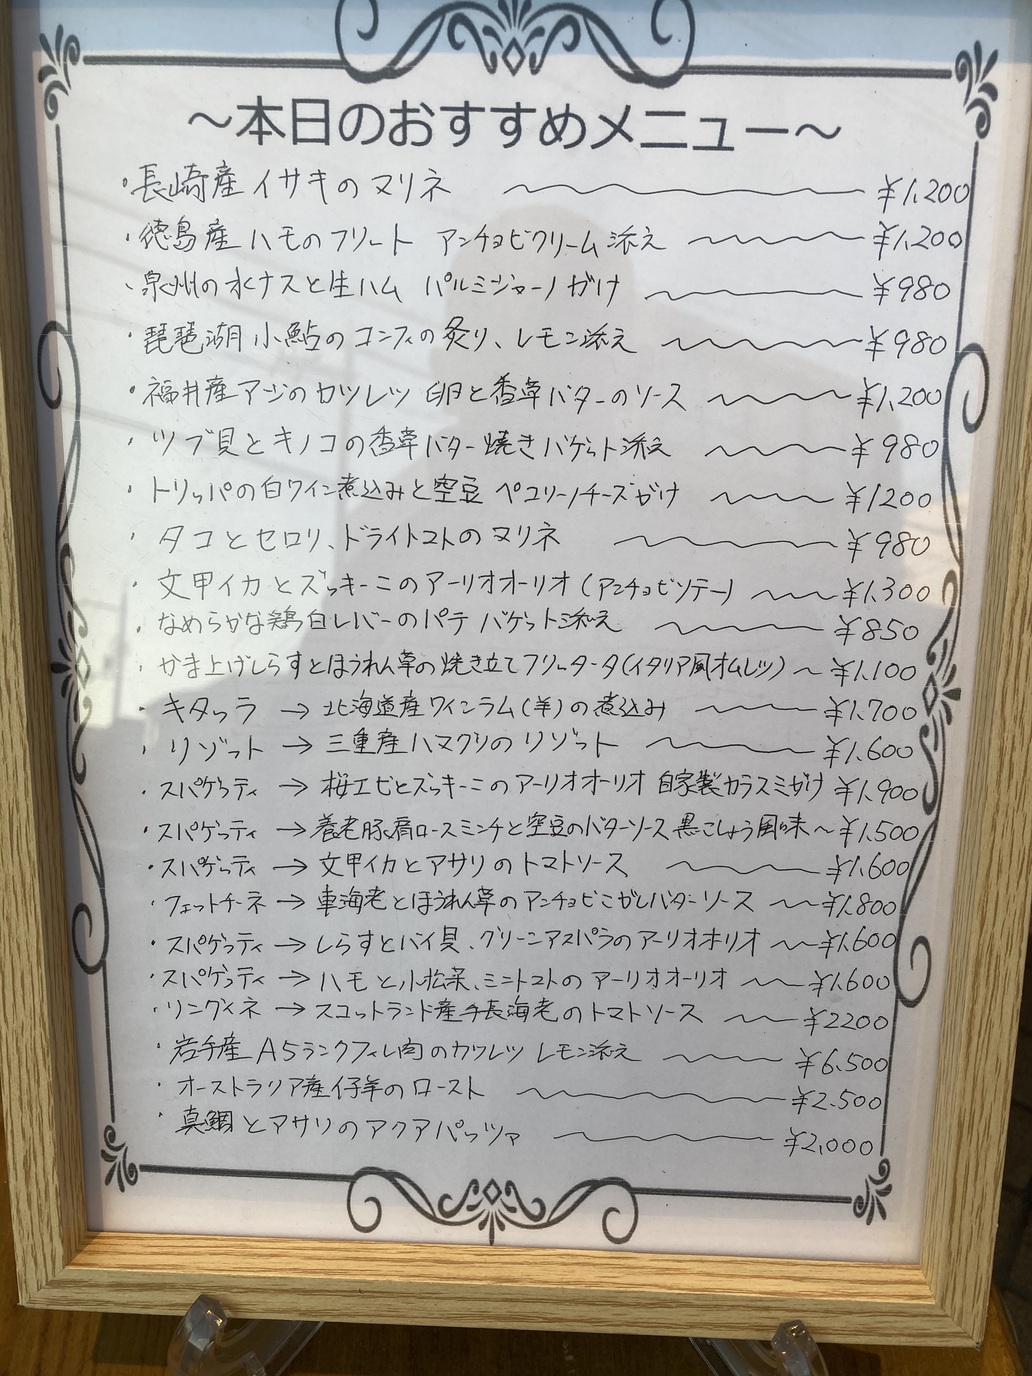 ～本日のおすすめメニュー～
・長崎産イサキのマリネ ¥1,200
・徳島産ハモのフリット アンチョビクリーム添え ¥1,200
・泉州の水ナスと生ハム パルミジャーノがけ ¥980
・琵琶湖小鮎のコンフィの炙り、レモン添え ¥980
・福井産アジのカツレツ 卵と香草バターのソース ¥1,200
・ツブ貝とキノコの香草バター焼きバゲット添え ¥980
・トリッパの白ワイン煮込みと空豆 ペコリーノチーズがけ ¥1200
・タコとセロリ、ドライトマトのマリネ ¥980
・文甲イカとズッキーニのアーリオオーリオ(アンチョビソテー) ¥1,300
・なめらかな鶏白レバーのパテ バゲット添え ¥850
・かま上げしらすとほうれん草の焼き立てフリッタータ(イタリア風オムレツ) ～ ¥1,100
・キタッラ → 北海道産ウィンラム(羊)の煮込み ¥1,700
・リゾット → 三重産ハマグリのリゾット ¥1,600
・スパゲッティ → 桜エビとズッキーニのアーリオオーリオ 自家製カラスミがけ ¥1,900
・スパゲッティ → 養老豚肩ロースミンチと空豆のバターソース黒こしょう風味～¥1,500
・スパゲッティ → 文甲イカとアサリのトマトソース ¥1,600
・フェットチーネ → 車海老とほうれん草のアンチョビこがしバターソース ¥1,800
・スパゲッティ → しらすとバイ貝、グリーンアスパラのアーリオオーリオ ¥1,600
・スパゲッティ → ハモと小松菜、ミニトマトのアーリオオーリオ ¥1,600
・リングイネ → スコットランド産手長海老のトマトソース ¥2200
・岩手産A5ランクフィレ肉のカツレツ レモン添え ¥6,500
・オーストラリア産仔羊のロースト ¥2,500
・真鯛とアサリのアクアパッツァ ¥2,000